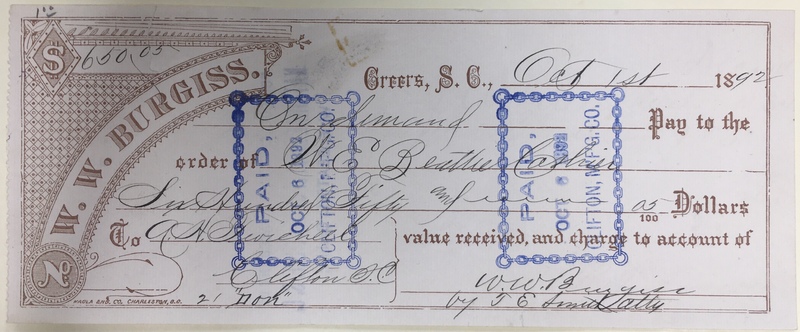 $ 650,05
W. W. BURGISS.
Greers, S. C., Oct 1st 1892
On demand Pay to the
order of W E Beattie Cashier
Six Hundred Fifty and 05/100 Dollars
To A. H. value received, and charge to account of
Clifton S.C
W. W. Burgiss
No
21 "Don" by T E Smith Atty
PAID,
OCT 6 1892
CLIFTON, MFG. CO.
PAID,
OCT 6 1892
CLIFTON, MFG. CO.
ENG. CO. CHARLESTON,